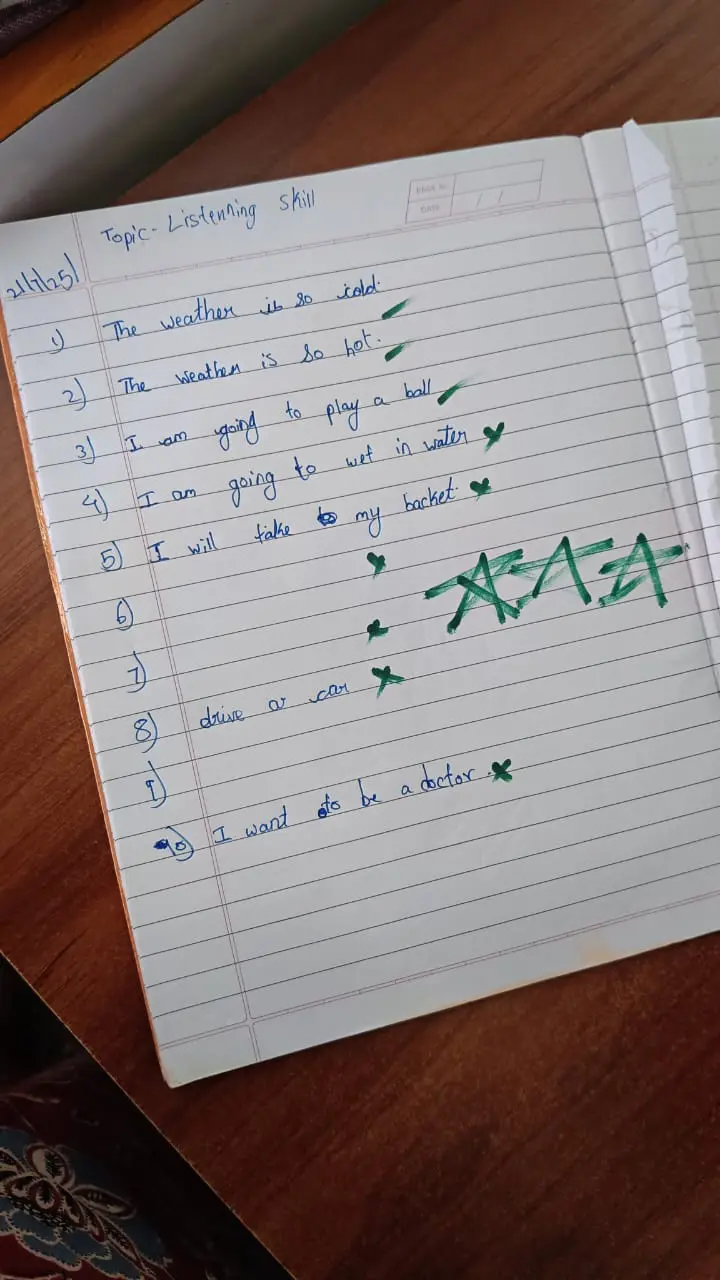 Topic - Listenning Skill
PAGE No.
DATE / /
21/7/25
1) The weather is so cold.
2) The weather is so hot.
3) I am going to play a ball
4) I am going to wet in water
5) I will take to my backet.
6)
7)
8) drive a car
9)
10) I want to be a doctor.